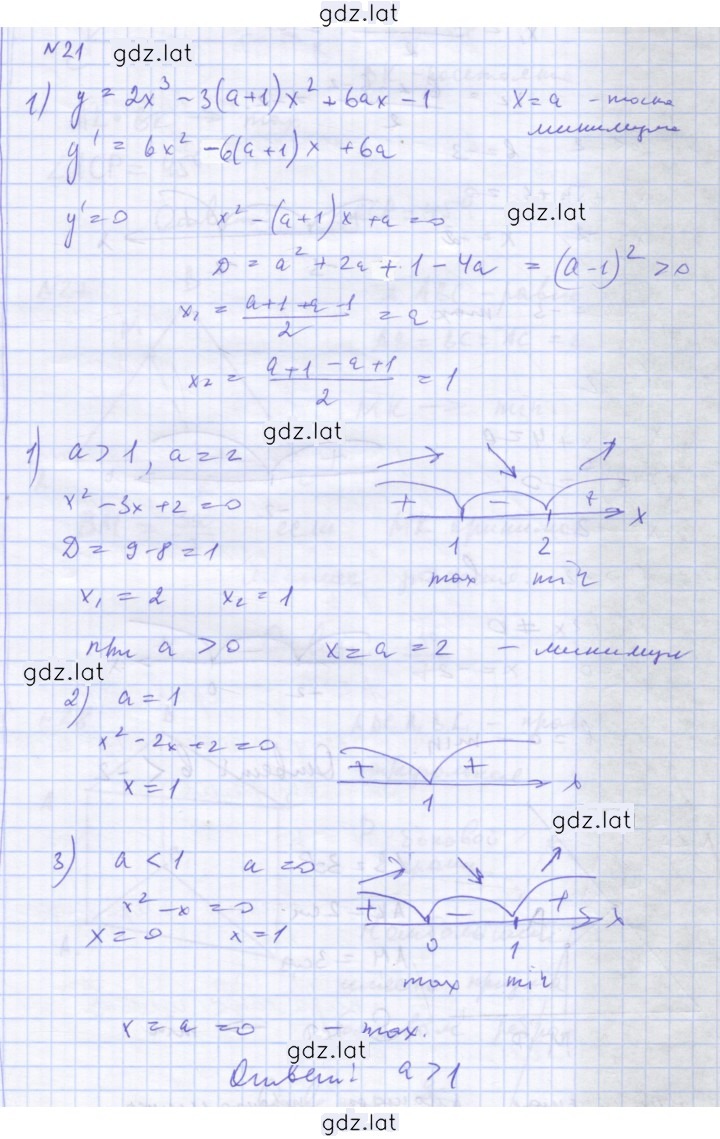 gdz.lat
№21 gdz.lat
1) y = 2x³ - 3(a+1)x² + 6ax - 1 x = a - точка
минимума
y' = 6x² - 6(a+1)x + 6a
y' = 0 x² - (a+1)x + a = 0 gdz.lat
D = a² + 2a + 1 - 4a = (a-1)² > 0
x₁ = (a+1+a-1)/2 = a
x₂ = (a+1-a+1)/2 = 1
gdz.lat
1) a > 1, a = 2
x² - 3x + 2 = 0 + - + x
D = 9 - 8 = 1 1 2
max min
x₁ = 2 x₂ = 1
при a > 0 x = a = 2 - минимум
gdz.lat
2) a = 1
x² - 2x + 2 = 0 + + x
x = 1 1
gdz.lat
3) a < 1 a = 0
x² - x = 0 + - + x
x = 0 x = 1 0 1
max min
x = a = 0 - max.
gdz.lat
Ответ: a > 1
gdz.lat